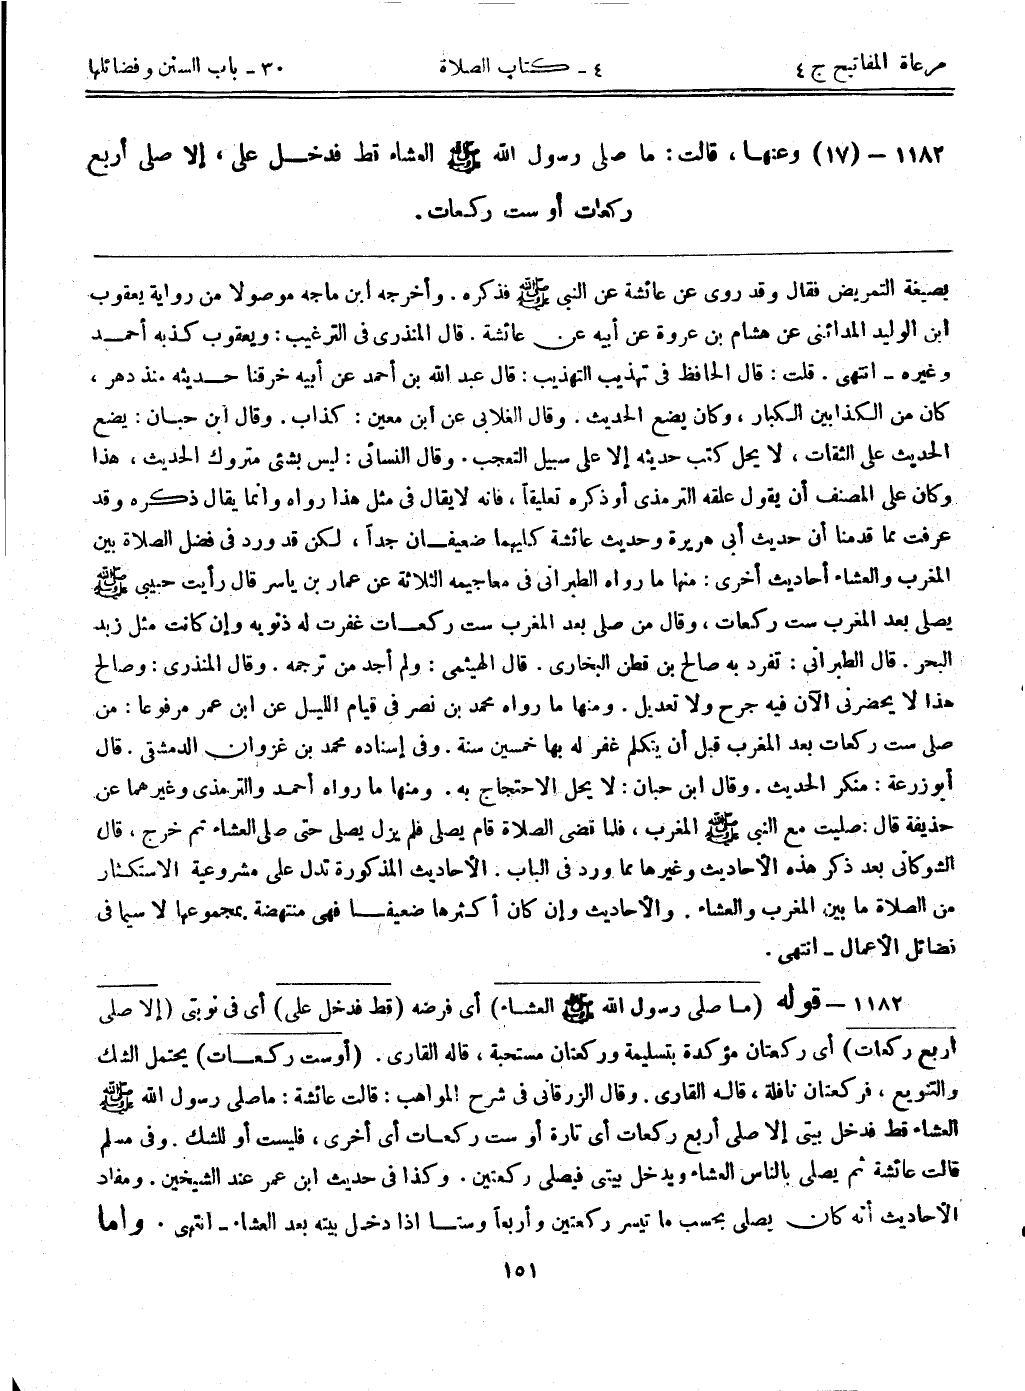 مرعاة المفاتيح ج ٤
٤ ـ كتاب الصلاة
٣٠ ـ باب السنن وفضائلها
١١٨٢ – (١٧) وعنها، قالت: ما صلى رسول الله ﷺ العشاء قط فدخل على، إلا صلى أربع
ركعات أو ست ركعات.
بصيغة التمريض فقال وقد روى عن عائشة عن النبي ﷺ فذكره. وأخرجه ابن ماجه موصولا من رواية يعقوب
ابن الوليد المدائنى عن هشام بن عروة عن أبيه عن عائشة. قال المنذرى فى الترغيب: ويعقوب كذبه أحمد
وغيره ـ انتهى. قلت: قال الحافظ فى تهذيب التهذيب: قال عبد الله بن أحمد عن أبيه خرقنا حديثه منذ دهر،
كان من الكذابين الكبار، وكان يضع الحديث. وقال الغلابى عن ابن معين: كذاب. وقال ابن حبان: يضع
الحديث على الثقات، لا يحل كتب حديثه إلا على سبيل التعجب. وقال النسائى: ليس بشئى متروك الحديث، هذا
وكان على المصنف أن يقول علقه الترمذى أو ذكره تعليقاً، فانه لا يقال فى مثل هذا رواه وانما يقال ذكره وقد
عرفت مما قدمنا أن حديث أبى هريرة وحديث عائشة كليهما ضعيفان جداً، لكن قد ورد فى فضل الصلاة بين
المغرب والعشاء أحاديث أخرى: منها ما رواه الطبرانى فى معاجيمه الثلاثة عن عمار بن ياسر قال رأيت حبيبى ﷺ
يصلى بعد المغرب ست ركعات، وقال من صلى بعد المغرب ست ركعات غفرت له ذنوبه وإن كانت مثل زبد
البحر. قال الطبرانى: تفرد به صالح بن قطن البخارى. قال الهيثمى: ولم أجد من ترجمه. وقال المنذرى: وصالح
هذا لا يحضرنى الآن فيه جرح ولا تعديل. ومنها ما رواه محمد بن نصر فى قيام الليل عن ابن عمر مرفوعا: من
صلى ست ركعات بعد المغرب قبل أن يتكلم غفر له بها خمسين سنة. وفى إسناده محمد بن غزوان الدمشقى. قال
أبو زرعة: منكر الحديث. وقال ابن حبان: لا يحل الاحتجاج به. ومنها ما رواه أحمد والترمذى وغيرهما عن
حذيفة قال: صليت مع النبي ﷺ المغرب، فلما قضى الصلاة قام يصلى فلم يزل يصلى حتى صلى العشاء ثم خرج، قال
الشوكانى بعد ذكر هذه الأحاديث وغيرها مما ورد فى الباب. الأحاديث المذكورة تدل على مشروعية الاستكثار
من الصلاة ما بين المغرب والعشاء. والأحاديث وإن كان أكثرها ضعيفا فهى منتهضة بمجموعها لا سيما فى
فضائل الأعمال ـ انتهى.
١١٨٢ – قوله (ما صلى رسول الله ﷺ العشاء) أى فرضه (قط فدخل على) أى فى نوبتى (إلا صلى
أربع ركعات) أى ركعتان مؤكدة بتسليمة وركعتان مستحبة، قاله القارى. (أوست ركعات) يحتمل الشك
والتنويع، فركعتان نافلة، قاله القارى. وقال الزرقانى فى شرح المواهب: قالت عائشة: ما صلى رسول الله ﷺ
العشاء قط فدخل بيتى إلا صلى أربع ركعات أى تارة أو ست ركعات أى أخرى، فليست أو للشك. وفى مسلم
قالت عائشة ثم يصلى بالناس العشاء ويدخل بيتى فيصلى ركعتين. وكذا فى حديث ابن عمر عند الشيخين. ومفاد
الأحاديث أنه كان يصلى بحسب ما تيسر ركعتين وأربعاً وستا اذا دخل بيته بعد العشاء ـ انتهى. واما
١٥١